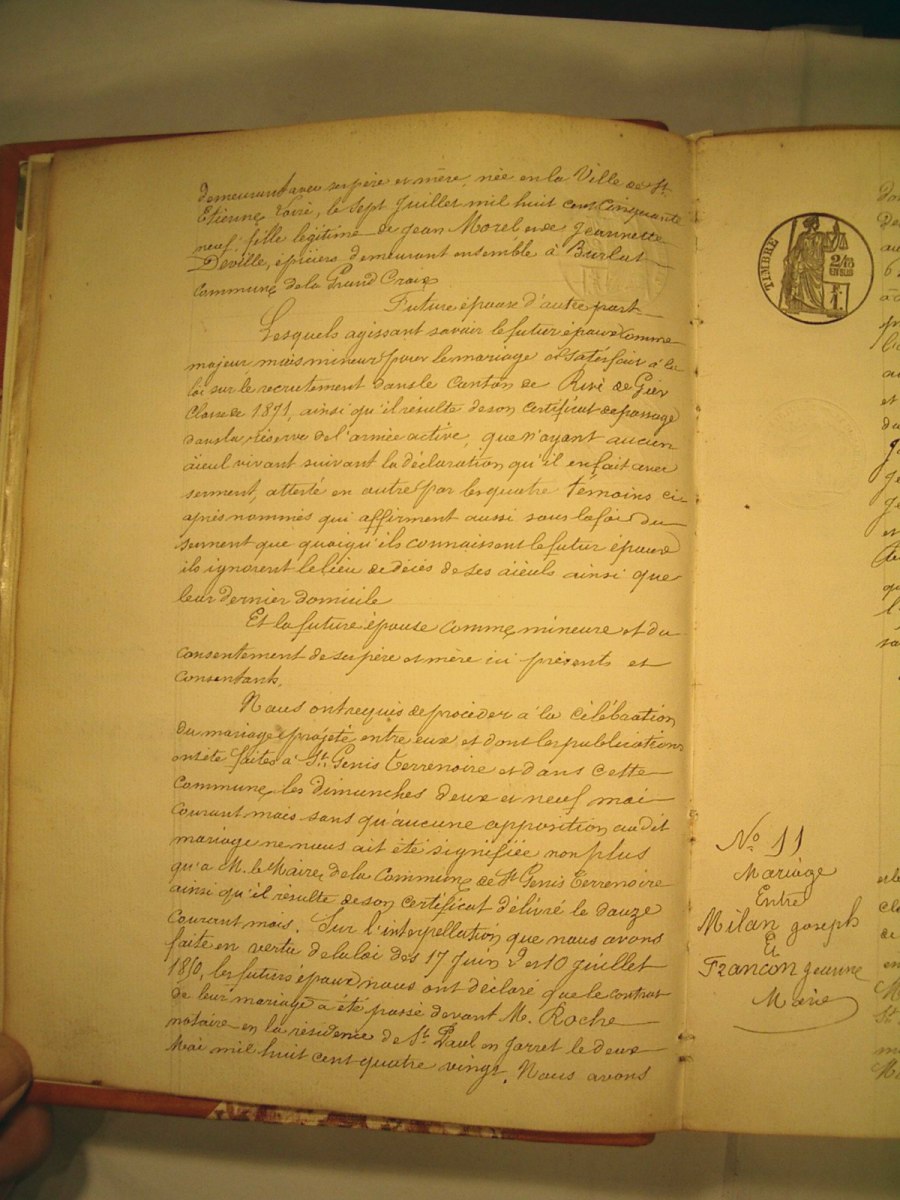 demeurant avec ses père et mère, née en la Ville de St
Etienne Loire, le sept Juillet mil huit cent cinquante
neuf, fille légitime de Jean Morel et de Jeannette
Deville, épiciers demeurant ensemble à Burlat
Commune de la Grand Croix
Future épouse d'autre part
Lesquels agissant savoir le futur époux comme
majeur mais mineur pour le mariage a satisfait à la
loi sur le recrutement dans le Canton de Rive de Gier
Classe de 1871, ainsi qu'il résulte de son certificat de passage
dans la réserve de l'armée active, que n'ayant aucun
aïeul vivant suivant la déclaration qu'il en fait avec
serment, attesté en outre par les quatre témoins ci
après nommés qui affirment aussi sous la foi du
serment que quoiqu'ils connaissent le futur époux
ils ignorent le lieu de décès de ses aïeuls ainsi que
leur dernier domicile
Et la future épouse comme mineure et du
consentement de ses père et mère ici présents et
consentants.
Nous ont requis de procéder à la célébration
du mariage projeté entre eux et dont les publications
ont été faites à St Genis Terrenoire et dans cette
Commune les dimanches deux et neuf mai
courant mois sans qu'aucune opposition audit
mariage ne nous ait été signifiée non plus
qu'a M. le Maire de la Commune de St Genis Terrenoire
ainsi qu'il résulte de son certificat délivré le douze
courant mois. Sur l'interpellation que nous avons
faite en vertu de la loi des 17 Juin & 10 Juillet
1850, les futurs époux nous ont déclaré que le contrat
de leur mariage a été passé devant M. Roche
notaire en la résidence de St Paul en Jarret le deux
Mai mil huit cent quatre vingt. Nous avons
TIMBRE
2/10
EN SUS
F.
1.
No 11
Mariage
Entre
Milan Joseph
Et
Francon Jeanne
Marie